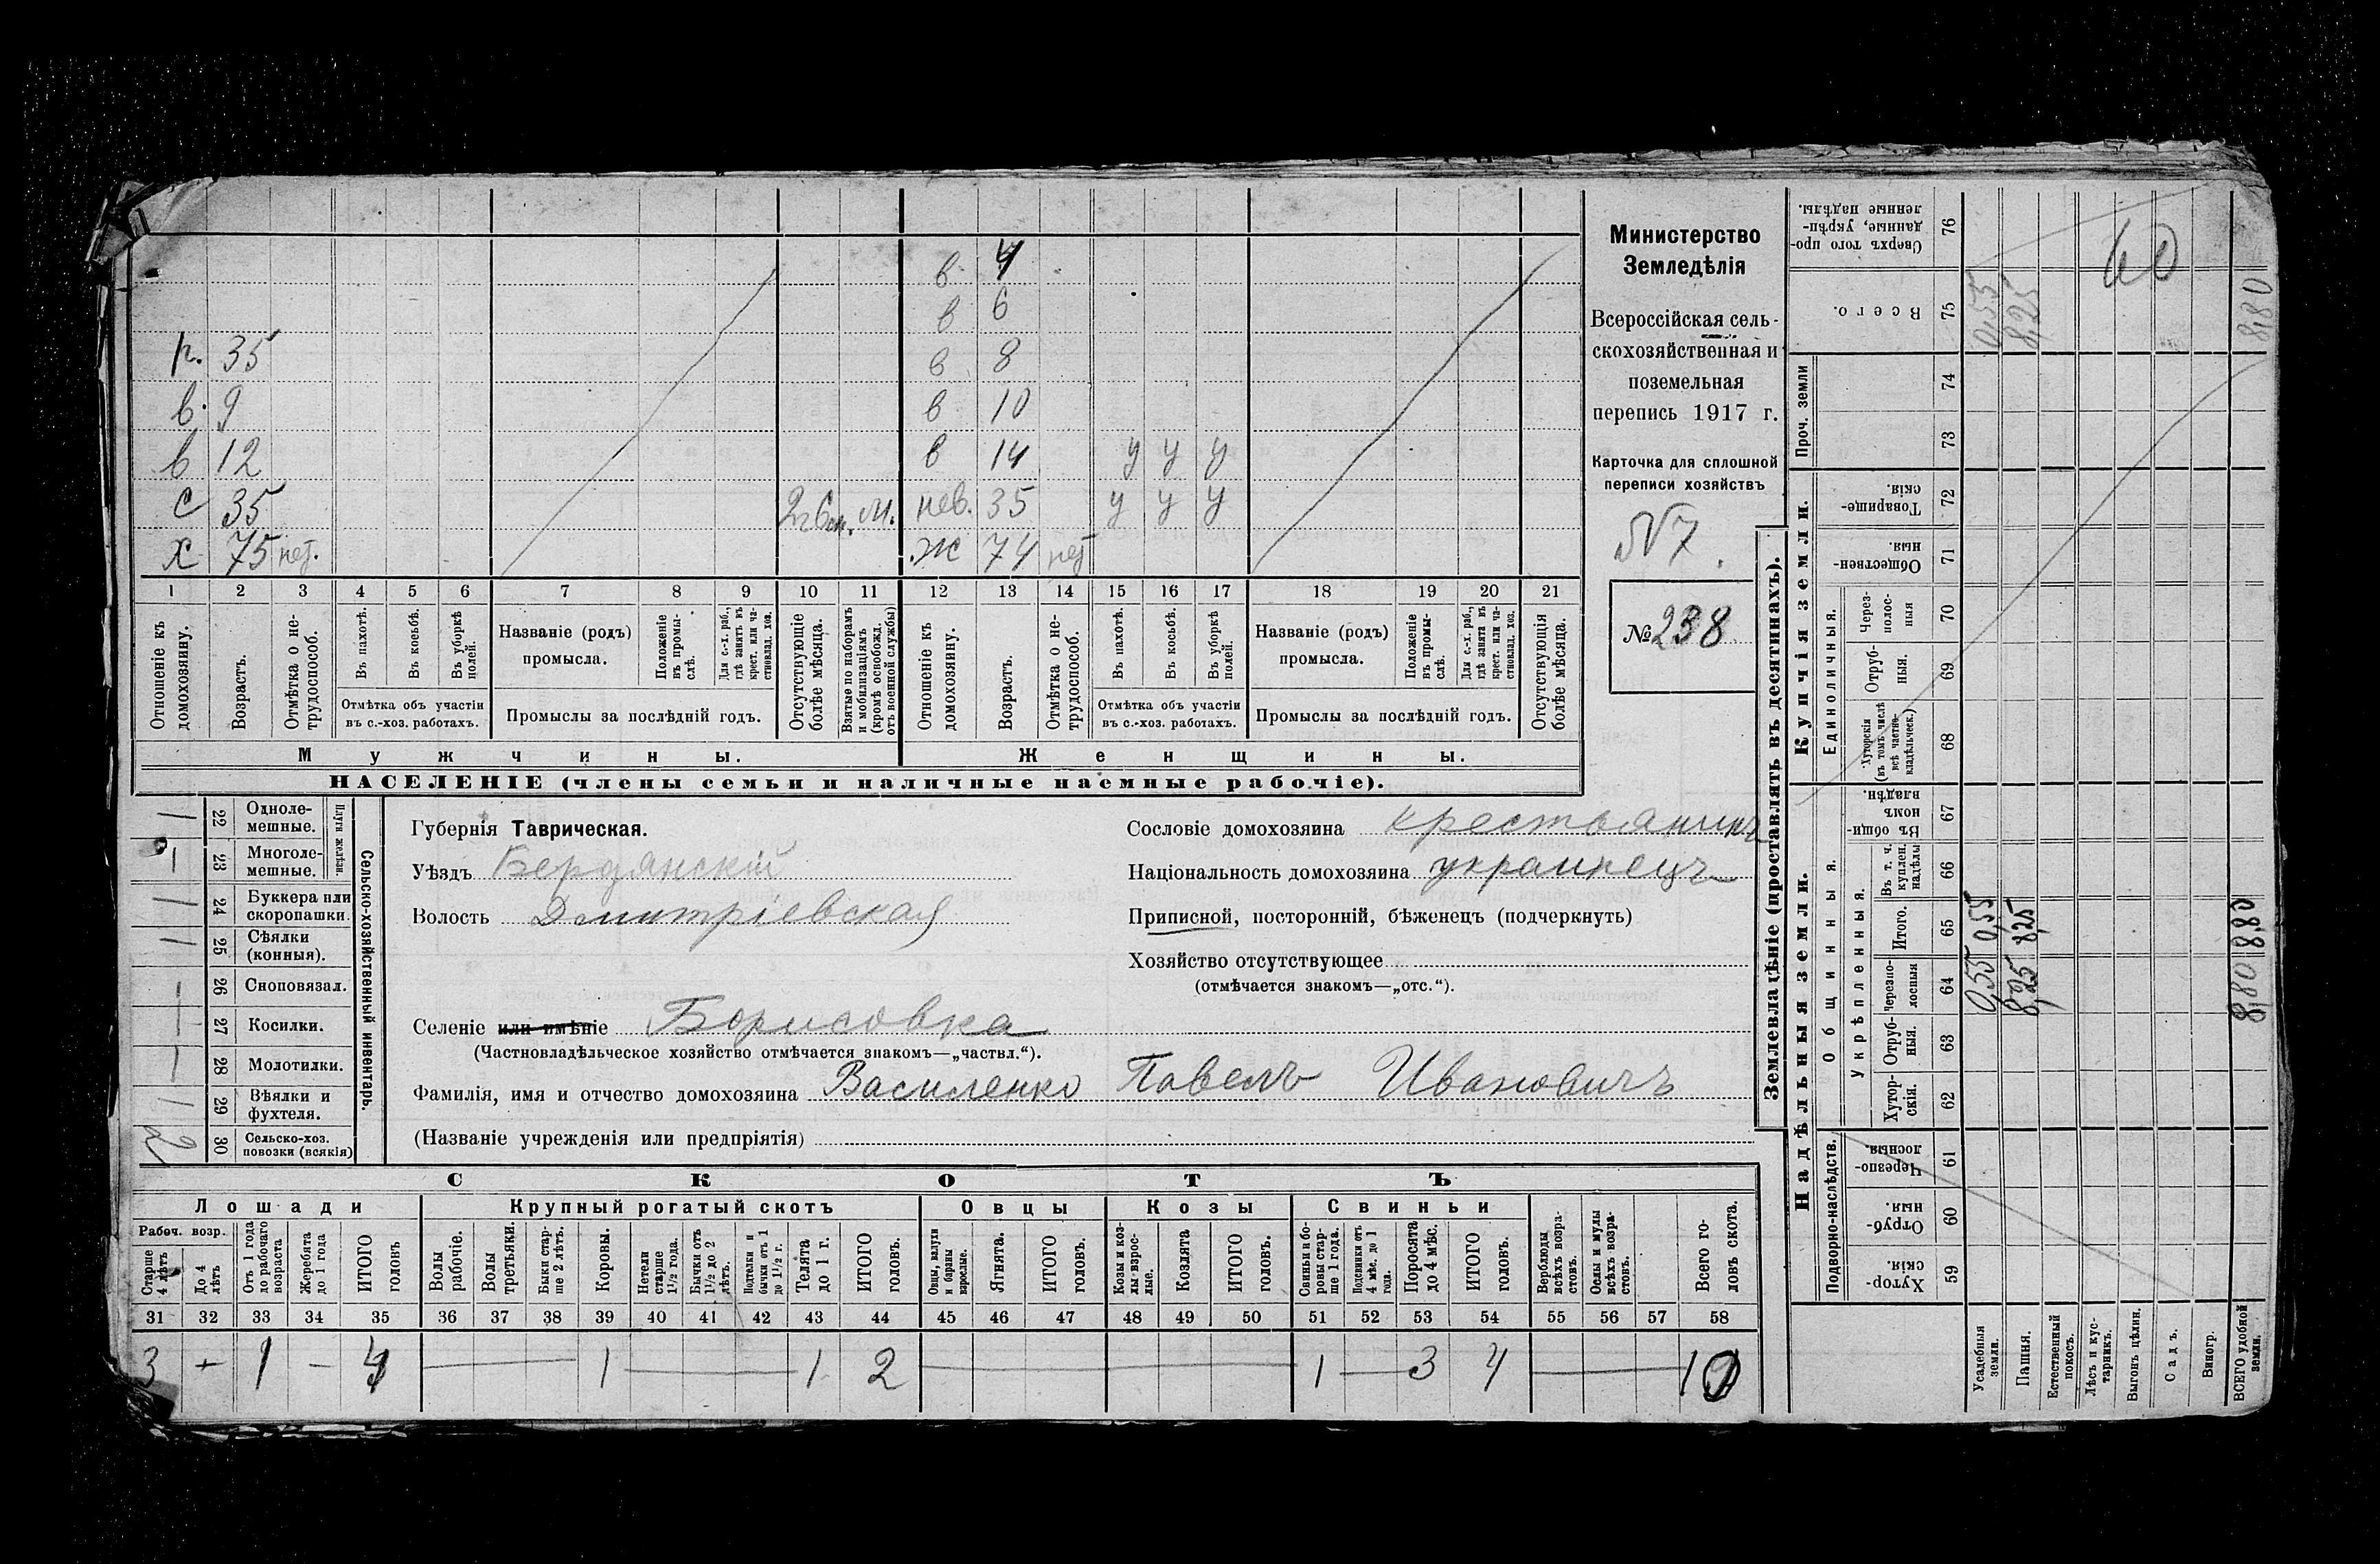 в 4
в 6
р. 35 в 8
в. 9 в 10
в 12 в 14 у у у
с 35 м. нев. 35 у у у
х 75 нет. ж 74 нет
1 2 3 4 5 6 7 8 9 10 11 12 13 14 15 16 17 18 19 20 21
Отношеніе къ домохозяину.
Возрастъ.
Отмѣтка о нетрудоспособ.
Въ пахотѣ.
Въ косьбѣ.
Въ уборкѣ полей.
Отмѣтка объ участіи
въ с.-хоз. работахъ.
Названіе (родъ)
промысла.
Положеніе въ промыслѣ.
Для с.-х. раб., гдѣ занятъ въ крест. или частновлад. хоз.
Промыслы за послѣдній годъ.
Отсутствующіе болѣе мѣсяца.
Взятые по наборамъ и мобилизаціямъ (кромѣ освобожд. отъ военной службы)
Отношеніе къ домохозяину.
Возрастъ.
Отмѣтка о нетрудоспособ.
Въ пахотѣ.
Въ косьбѣ.
Въ уборкѣ полей.
Отмѣтка объ участіи
въ с.-хоз. работахъ.
Названіе (родъ)
промысла.
Положеніе въ промыслѣ.
Для с.-х. раб., гдѣ занята въ крест. или частновлад. хоз.
Промыслы за послѣдній годъ.
Отсутствующія болѣе мѣсяца.
Мужчины. Женщины.
НАСЕЛЕНІЕ (члены семьи и наличные наемные рабочіе).
Министерство
Земледѣлія
Всероссійская сель-
скохозяйственная и
поземельная
перепись 1917 г.
Карточка для сплошной
переписи хозяйствъ
№ 7.
№ 238
1 22 Одноле-
мешные.
— 23 Многоле-
мешные.
Плуги желѣзн.
1 24 Буккера или
скоропашки.
1 25 Сѣялки
(конныя).
— 26 Сноповязал.
— 27 Косилки.
— 28 Молотилки.
1 29 Вѣялки и
фухтеля.
2 30 Сельско-хоз.
повозки (всякія)
Сельско-хозяйственный инвентарь.
Губернія Таврическая.
Уѣздъ Бердянскій
Волость Дмитріевская
Селеніе или имѣніе Борисовка
(Частновладѣльческое хозяйство отмѣчается знакомъ—„частвл.“).
Фамилія, имя и отчество домохозяина Василенко Павелъ Ивановичъ
(Названіе учрежденія или предпріятія)
Сословіе домохозяина крестьянинъ
Національность домохозяина украинецъ
Приписной, посторонній, бѣженецъ (подчеркнуть)
Хозяйство отсутствующее
(отмѣчается знакомъ—„отс.“).
СКОТЪ
Лошади Крупный рогатый скотъ Овцы Козы Свиньи
Рабоч. возр.
Старше 4 лѣтъ
До 4 лѣтъ
Отъ 1 года до рабочаго возраста
Жеребята до 1 года
ИТОГО головъ
Волы рабочіе.
Волы третьяки.
Быки старше 2 лѣтъ.
Коровы.
Нетели старше 1½ года.
Бычки отъ 1½ до 2 лѣтъ.
Подтелки и бычки отъ 1 до 1½ г.
Телята до 1 г.
ИТОГО головъ.
Овцы, валухи и бараны взрослые.
Ягнята.
ИТОГО головъ.
Козы и козлы взрослые.
Козлята
ИТОГО головъ.
Свиньи и боровы старше 1 года.
Подсвинки отъ 4 мѣс. до 1 года.
Поросята до 4 мѣс.
ИТОГО головъ.
Верблюды всѣхъ возрастовъ.
Ослы и мулы всѣхъ возрастовъ.
Всего головъ скота.
31 32 33 34 35 36 37 38 39 40 41 42 43 44 45 46 47 48 49 50 51 52 53 54 55 56 57 58
3 1 — 4 — 1 — 1 2 — — 1 — 3 4 —
Землевладѣніе (проставлять въ десятинахъ).
Надѣльныя земли. Купчія земли. Проч. земли
Подворно-наслѣдств.
Общинныя.
Укрѣпленныя.
Единоличныя.
Сверхъ того проданные, укрѣпленные надѣлы. 76
Всего. 75 0,55 8,25 8,80
60
74
73
Товарищескія. 72
Общественныя. 71
Чрезполосныя 70
Отрубныя. 69
Хуторскія (въ томъ числѣ всѣ частновладѣльческ.) 68
Въ общинномъ владѣн. 67
Въ т. ч. куплен. надѣлы 66
Итого. 65 0,55 8,25 8,80
Черезполосныя 64 0,55 8,25 8,80
Отрубныя. 63
Хуторскія. 62
Черезполосныя. 61
Отрубныя. 60
Хуторскія. 59
Усадебныя земли.
Пашня.
Естественный покосъ.
Лѣсъ и кустарникъ.
Выгонъ цѣлин.
Садъ.
Виногр.
ВСЕГО удобной земли.